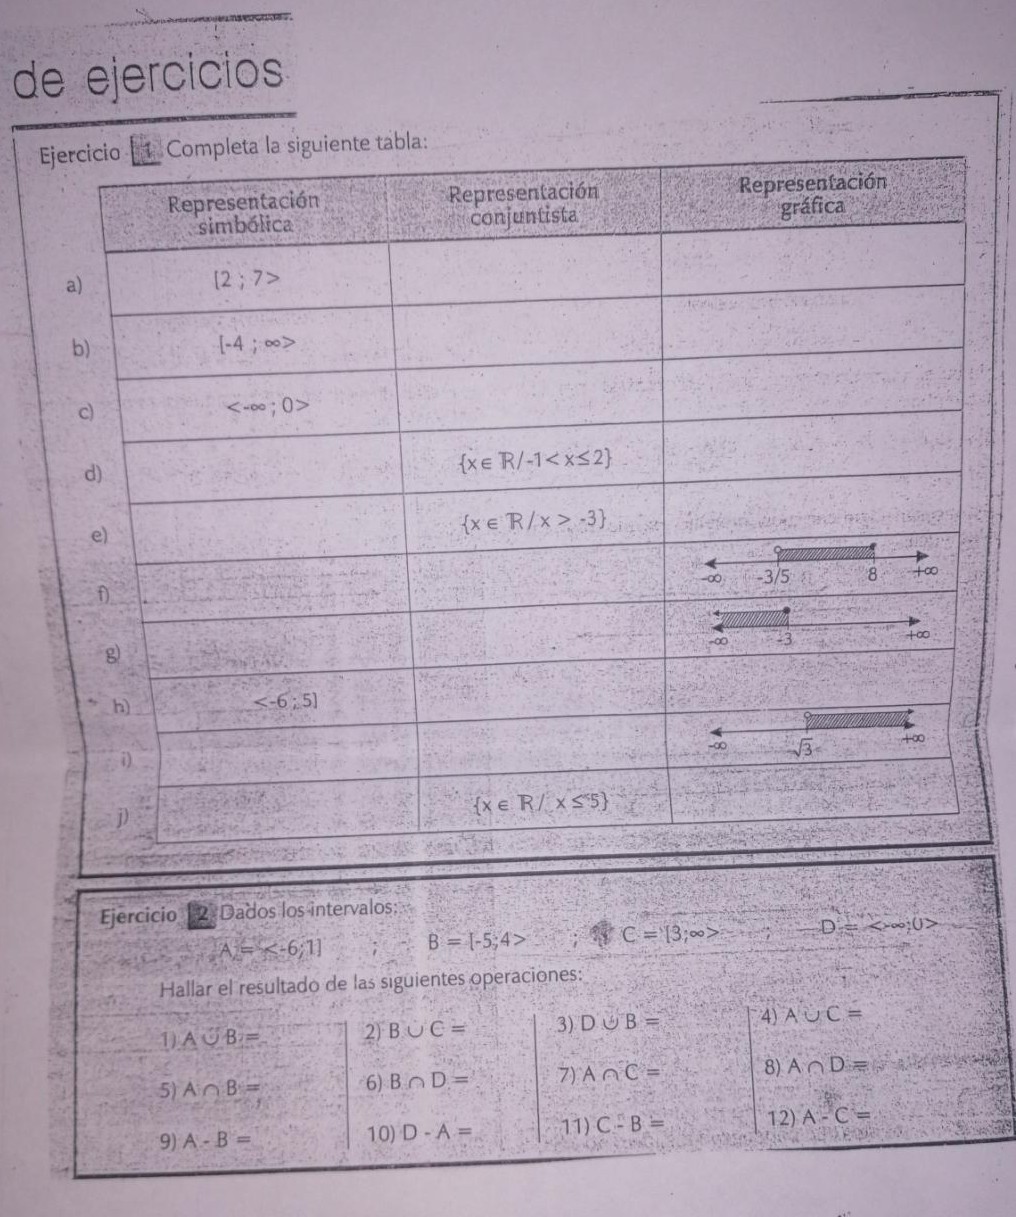 de ejercicios
Ejercicio 1 Completa la siguiente tabla:
Representación simbólica
Representación conjuntista
Representación gráfica
a) [2 ; 7>
b) [-4 ; ∞>
c) <-∞ ; 0>
d) {x ∈ ℝ/-1 < x ≤ 2}
e) {x ∈ ℝ/x > -3}
f) -∞ -3/5 8 +∞
g) -∞ -3 +∞
h) <-6 ; 5]
i) -∞ √3 +∞
j) {x ∈ ℝ/ x ≤ 5}
Ejercicio 2 Dados los intervalos:
A = <-6;1] ; B = [-5;4> ; C = [3;∞> ; D = <-∞;0>
Hallar el resultado de las siguientes operaciones:
1) A ∪ B = 2) B ∪ C = 3) D ∪ B = 4) A ∪ C =
5) A ∩ B = 6) B ∩ D = 7) A ∩ C = 8) A ∩ D =
9) A - B = 10) D - A = 11) C - B = 12) A - C =